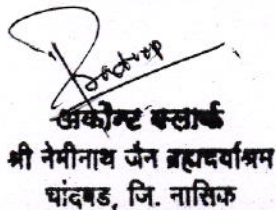 अकौन्ट क्लार्क
श्री नेमीनाथ जैन ब्रह्मचर्याश्रम
चांदवड, जि. नासिक